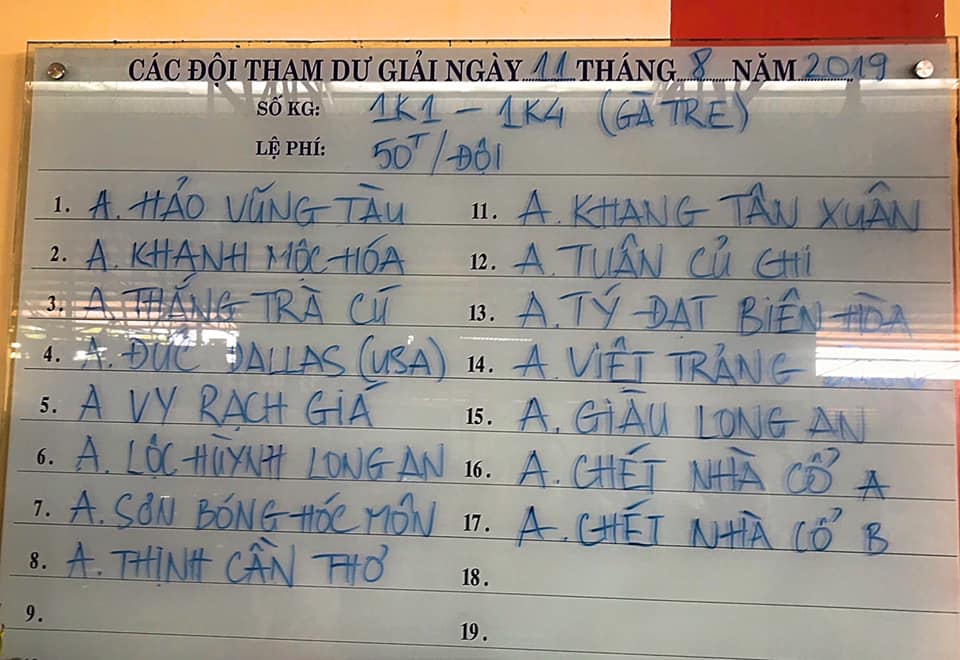 CÁC ĐỘI THAM DỰ GIẢI NGÀY 11 THÁNG 8 NĂM 2019
SỐ KG: 1K1 - 1K4 (GÀ TRE)
LỆ PHÍ: 50T/ĐỘI
1. A. HẢO VŨNG TÀU
2. A. KHẠNH MỘC HÓA
3. A. THẮNG TRÀ CÚ
4. A. ĐỨC DALLAS (USA)
5. A VY RẠCH GIÁ
6. A. LỘC HUỲNH LONG AN
7. A. SƠN BÓNG HÓC MÔN
8. A. THỊNH CẦN THƠ
9.
11. A. KHANG TÂN XUÂN
12. A. TUẤN CỦ CHI
13. A. TÝ ĐẠT BIÊN HÒA
14. A. VIỆT TRẢNG
15. A. GIÀU LONG AN
16. A. CHÉT NHÀ CỔ A
17. A. CHÉT NHÀ CỔ B
18.
19.